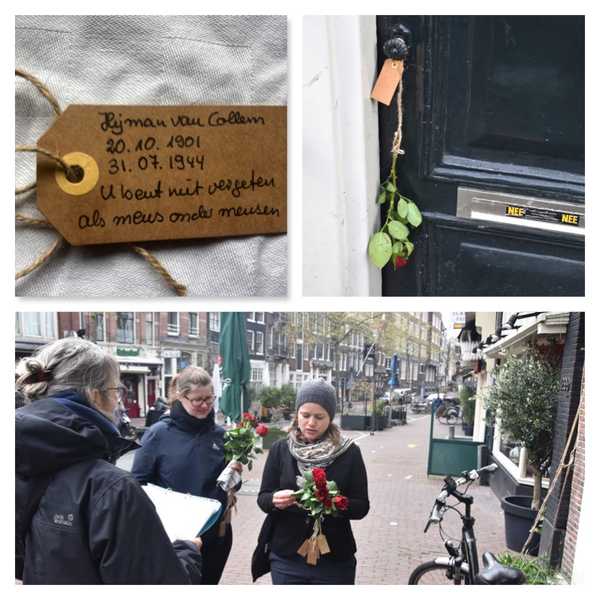 Hijman van Collem
20.10.1901
31.07.1944
U bent niet vergeten
als mens onder mensen
NEE NEE